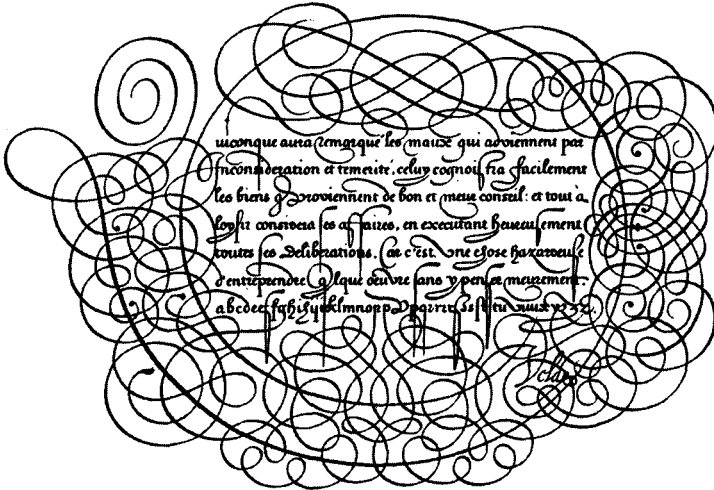 uiconque aura remarqué les maux qui adviennent par
inconsideration et temerité, celuy cognoistra facilement
les biens q̃ proviennent de bon et meur conseil: et tout à
loysir considera ses affaires, en executant heureusement
toutes ses deliberations. Car c'est une chose hazardeuse
d'entreprendre q̃lque oeuvre sans y penser meurement.